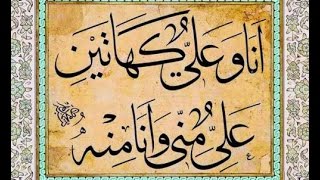 اَنَا وَ عَلِيٌّ كَهَاتَيْن
عَلِيٌّ مِنّى وَ اَنَا مِنْهُ